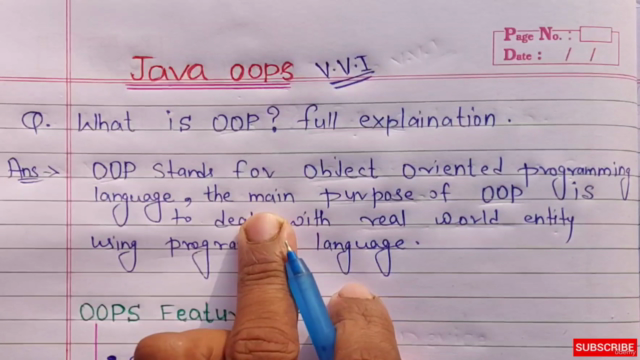 Page No.:
Date: / /
Java OOPS V.V.I
Q. What is OOP? full explaination.
Ans:→ OOP stands for Object Oriented programming
language, the main purpose of OOP is
to with real world entity
using language.
OOPS
SUBSCRIBE